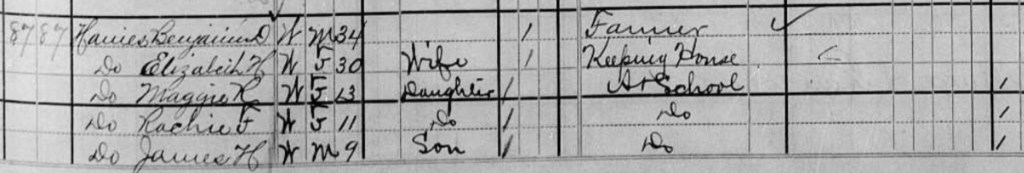 87 87 Harris Benjamin D W M 34 / Farmer ✓
Do Elizabeth H W F 30 Wife / Keepuig House
Do Maggie R W F 13 Daughter / At School /
Do Rachie F W F 11 Do / Do /
Do James H W M 9 Son / Do /